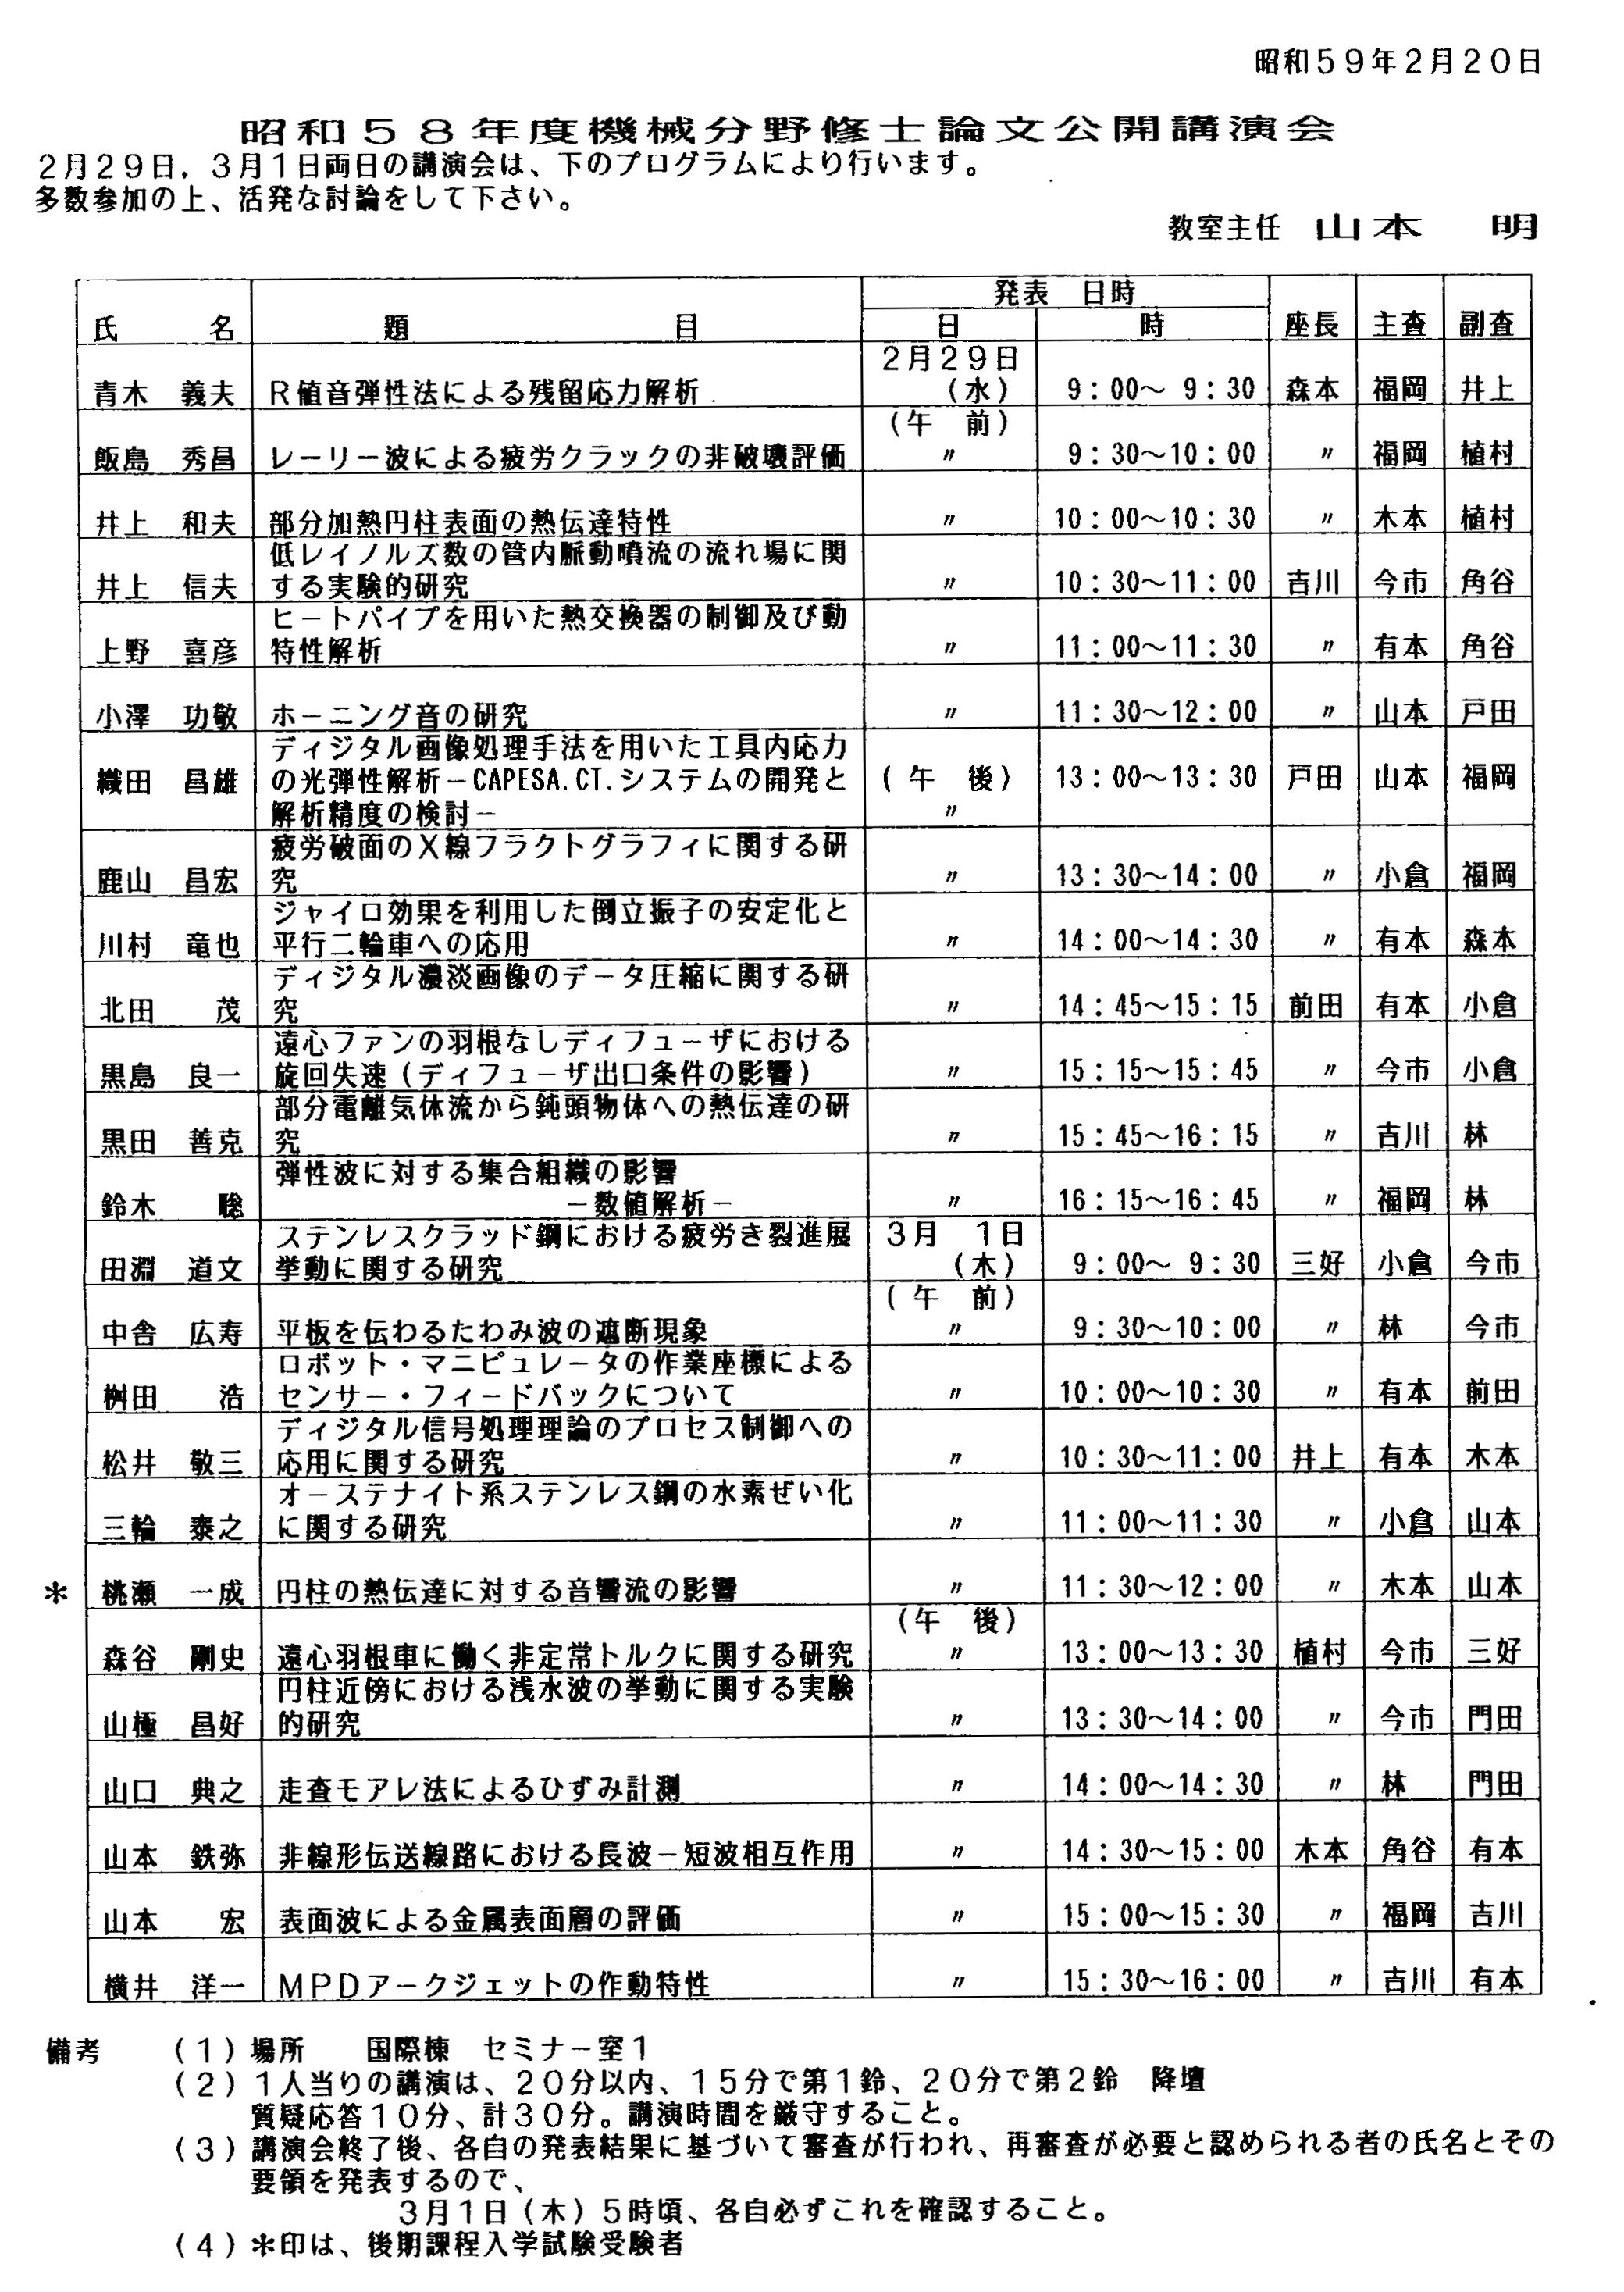 昭和59年2月20日
昭和58年度機械分野修士論文公開講演会
2月29日，3月1日両日の講演会は、下のプログラムにより行います。
多数参加の上、活発な討論をして下さい。
教室主任 山本 明
氏 名 題 目 発表 日時 座長 主査 副査
日 時
2月29日
青木 義夫 R値音弾性法による残留応力解析 (水) 9:00～ 9:30 森本 福岡 井上
(午 前)
飯島 秀昌 レーリー波による疲労クラックの非破壊評価 〃 9:30～10:00 〃 福岡 植村
井上 和夫 部分加熱円柱表面の熱伝達特性 〃 10:00～10:30 〃 木本 植村
低レイノルズ数の管内脈動噴流の流れ場に関
井上 信夫 する実験的研究 〃 10:30～11:00 吉川 今市 角谷
ヒートパイプを用いた熱交換器の制御及び動
上野 喜彦 特性解析 〃 11:00～11:30 〃 有本 角谷
小澤 功敏 ホーニング音の研究 〃 11:30～12:00 〃 山本 戸田
ディジタル画像処理手法を用いた工具内応力
織田 昌雄 の光弾性解析－CAPESA.CT.システムの開発と (午 後) 13:00～13:30 戸田 山本 福岡
解析精度の検討－ 〃
疲労破面のX線フラクトグラフィに関する研
鹿山 昌宏 究 〃 13:30～14:00 〃 小倉 福岡
ジャイロ効果を利用した倒立振子の安定化と
川村 竜也 平行二輪車への応用 〃 14:00～14:30 〃 有本 森本
ディジタル濃淡画像のデータ圧縮に関する研
北田 茂 究 〃 14:45～15:15 前田 有本 小倉
遠心ファンの羽根なしディフューザにおける
黒島 良一 旋回失速(ディフューザ出口条件の影響) 〃 15:15～15:45 〃 今市 小倉
部分電離気体流から鈍頭物体への熱伝達の研
黒田 善克 究 〃 15:45～16:15 〃 吉川 林
弾性波に対する集合組織の影響
鈴木 聡 －数値解析－ 〃 16:15～16:45 〃 福岡 林
ステンレスクラッド鋼における疲労き裂進展 3月 1日
田淵 道文 挙動に関する研究 (木) 9:00～ 9:30 三好 小倉 今市
(午 前)
中舎 広寿 平板を伝わるたわみ波の遮断現象 〃 9:30～10:00 〃 林 今市
ロボット・マニピュレータの作業座標による
桝田 浩 センサー・フィードバックについて 〃 10:00～10:30 〃 有本 前田
ディジタル信号処理理論のプロセス制御への
松井 敬三 応用に関する研究 〃 10:30～11:00 井上 有本 木本
オーステナイト系ステンレス鋼の水素ぜい化
三輪 泰之 に関する研究 〃 11:00～11:30 〃 小倉 山本
＊ 桃瀬 一成 円柱の熱伝達に対する音響流の影響 〃 11:30～12:00 〃 木本 山本
(午 後)
森谷 剛史 遠心羽根車に働く非定常トルクに関する研究 〃 13:00～13:30 植村 今市 三好
円柱近傍における浅水波の挙動に関する実験
山極 昌好 的研究 〃 13:30～14:00 〃 今市 門田
山口 典之 走査モアレ法によるひずみ計測 〃 14:00～14:30 〃 林 門田
山本 鉄弥 非線形伝送線路における長波－短波相互作用 〃 14:30～15:00 木本 角谷 有本
山本 宏 表面波による金属表面層の評価 〃 15:00～15:30 〃 福岡 吉川
横井 洋一 MPDアークジェットの作動特性 〃 15:30～16:00 〃 吉川 有本
備考 (1)場所 国際棟 セミナー室1
(2)1人当りの講演は、20分以内、15分で第1鈴、20分で第2鈴 降壇
質疑応答10分、計30分。講演時間を厳守すること。
(3)講演会終了後、各自の発表結果に基づいて審査が行われ、再審査が必要と認められる者の氏名とその
要領を発表するので、
3月1日(木)5時頃、各自必ずこれを確認すること。
(4)＊印は、後期課程入学試験受験者